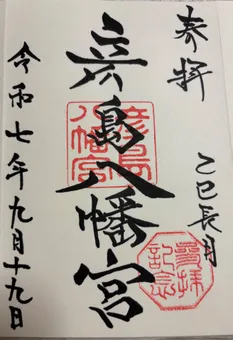 奉拝
乙巳長月
参拝記念
彦島八幡宮
彦島八幡宮
令和七年九月十九日